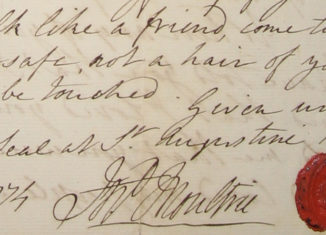 like a friend, come to
safe, not a hair of yo
be touched. Given un
Seal at St. Augustine
774 Jno Moultrie